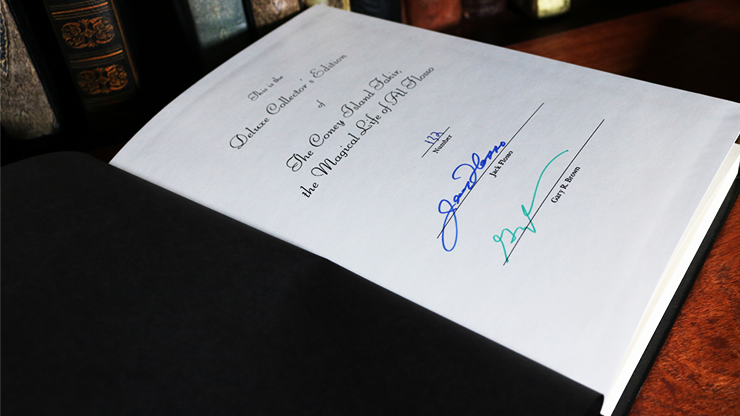 This is the
Deluxe Collector's Edition
of
The Coney Island Fakir,
the Magical Life of Al Flosso
Number
Jack Flosso
Gary R. Brown